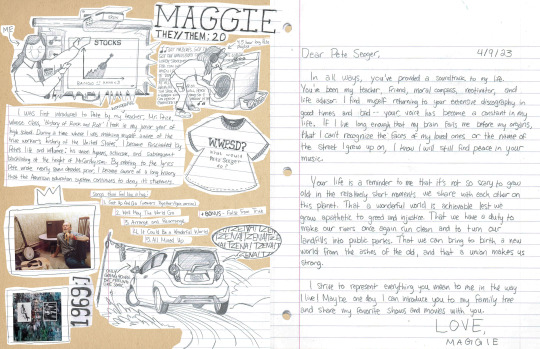 MAGGIE
THEY/THEM; 20
ME
STOCKS
I was first introduced to Pete by my teacher, Mr. Price,
whose class, "History of Rock and Roll" I took in my junior year of
high school. During a time where I was making myself aware of the
true worker's history of the United States, I became fascinated by
Pete's life and influence, his brave hymns, activism, and subsequent
blacklisting at the height of McCarthyism. By listening to the lyrics
Pete wrote nearly seven decades prior, I became aware of a long history
that the American education system continues to deny its students.
WWPSD?
What would
Pete Seeger
do?
Songs that feel like a hug:
1. Get Up and Go
2. Well May The World Go
3. Arrange and Rearrange
4. It Could Be a Wonderful World
5. All Mixed Up
BONUS - False From True
TZENA TZENA
1969:
Dear Pete Seeger,
4/9/23
In all ways, you've provided a soundtrack to my life.
You've been my teacher, friend, moral compass, motivator, and
life advisor. I find myself returning to your extensive discography in
good times and bad -- your voice has become a constant in my
life. If I live long enough that my brain fails me before my organs,
that I can't recognize the faces of my loved ones or the name of
the street I grew up on, I know I will still find peace in your
music.
Your life is a reminder to me that it's not so scary to grow
old in the relatively short moments we share with each other on
this planet. That a wonderful world is achievable lest we
grow apathetic to greed and injustice. That we have a duty to
make our rivers once again run clean and to turn our
landfills into public parks. That we can bring to birth a new
world from the ashes of the old, and that a union makes us
strong.
I strive to represent everything you mean to me in the way
I live! Maybe one day I can introduce you to my family tree
and share my favorite shows and movies with you.
LOVE,
MAGGIE